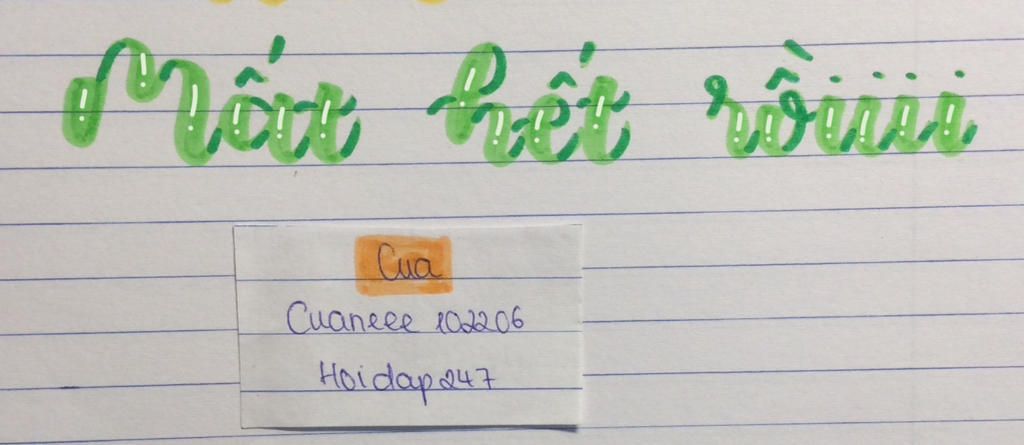 Mất hết rồiiii
Cua
Cuaneee 102206
Hoidap247